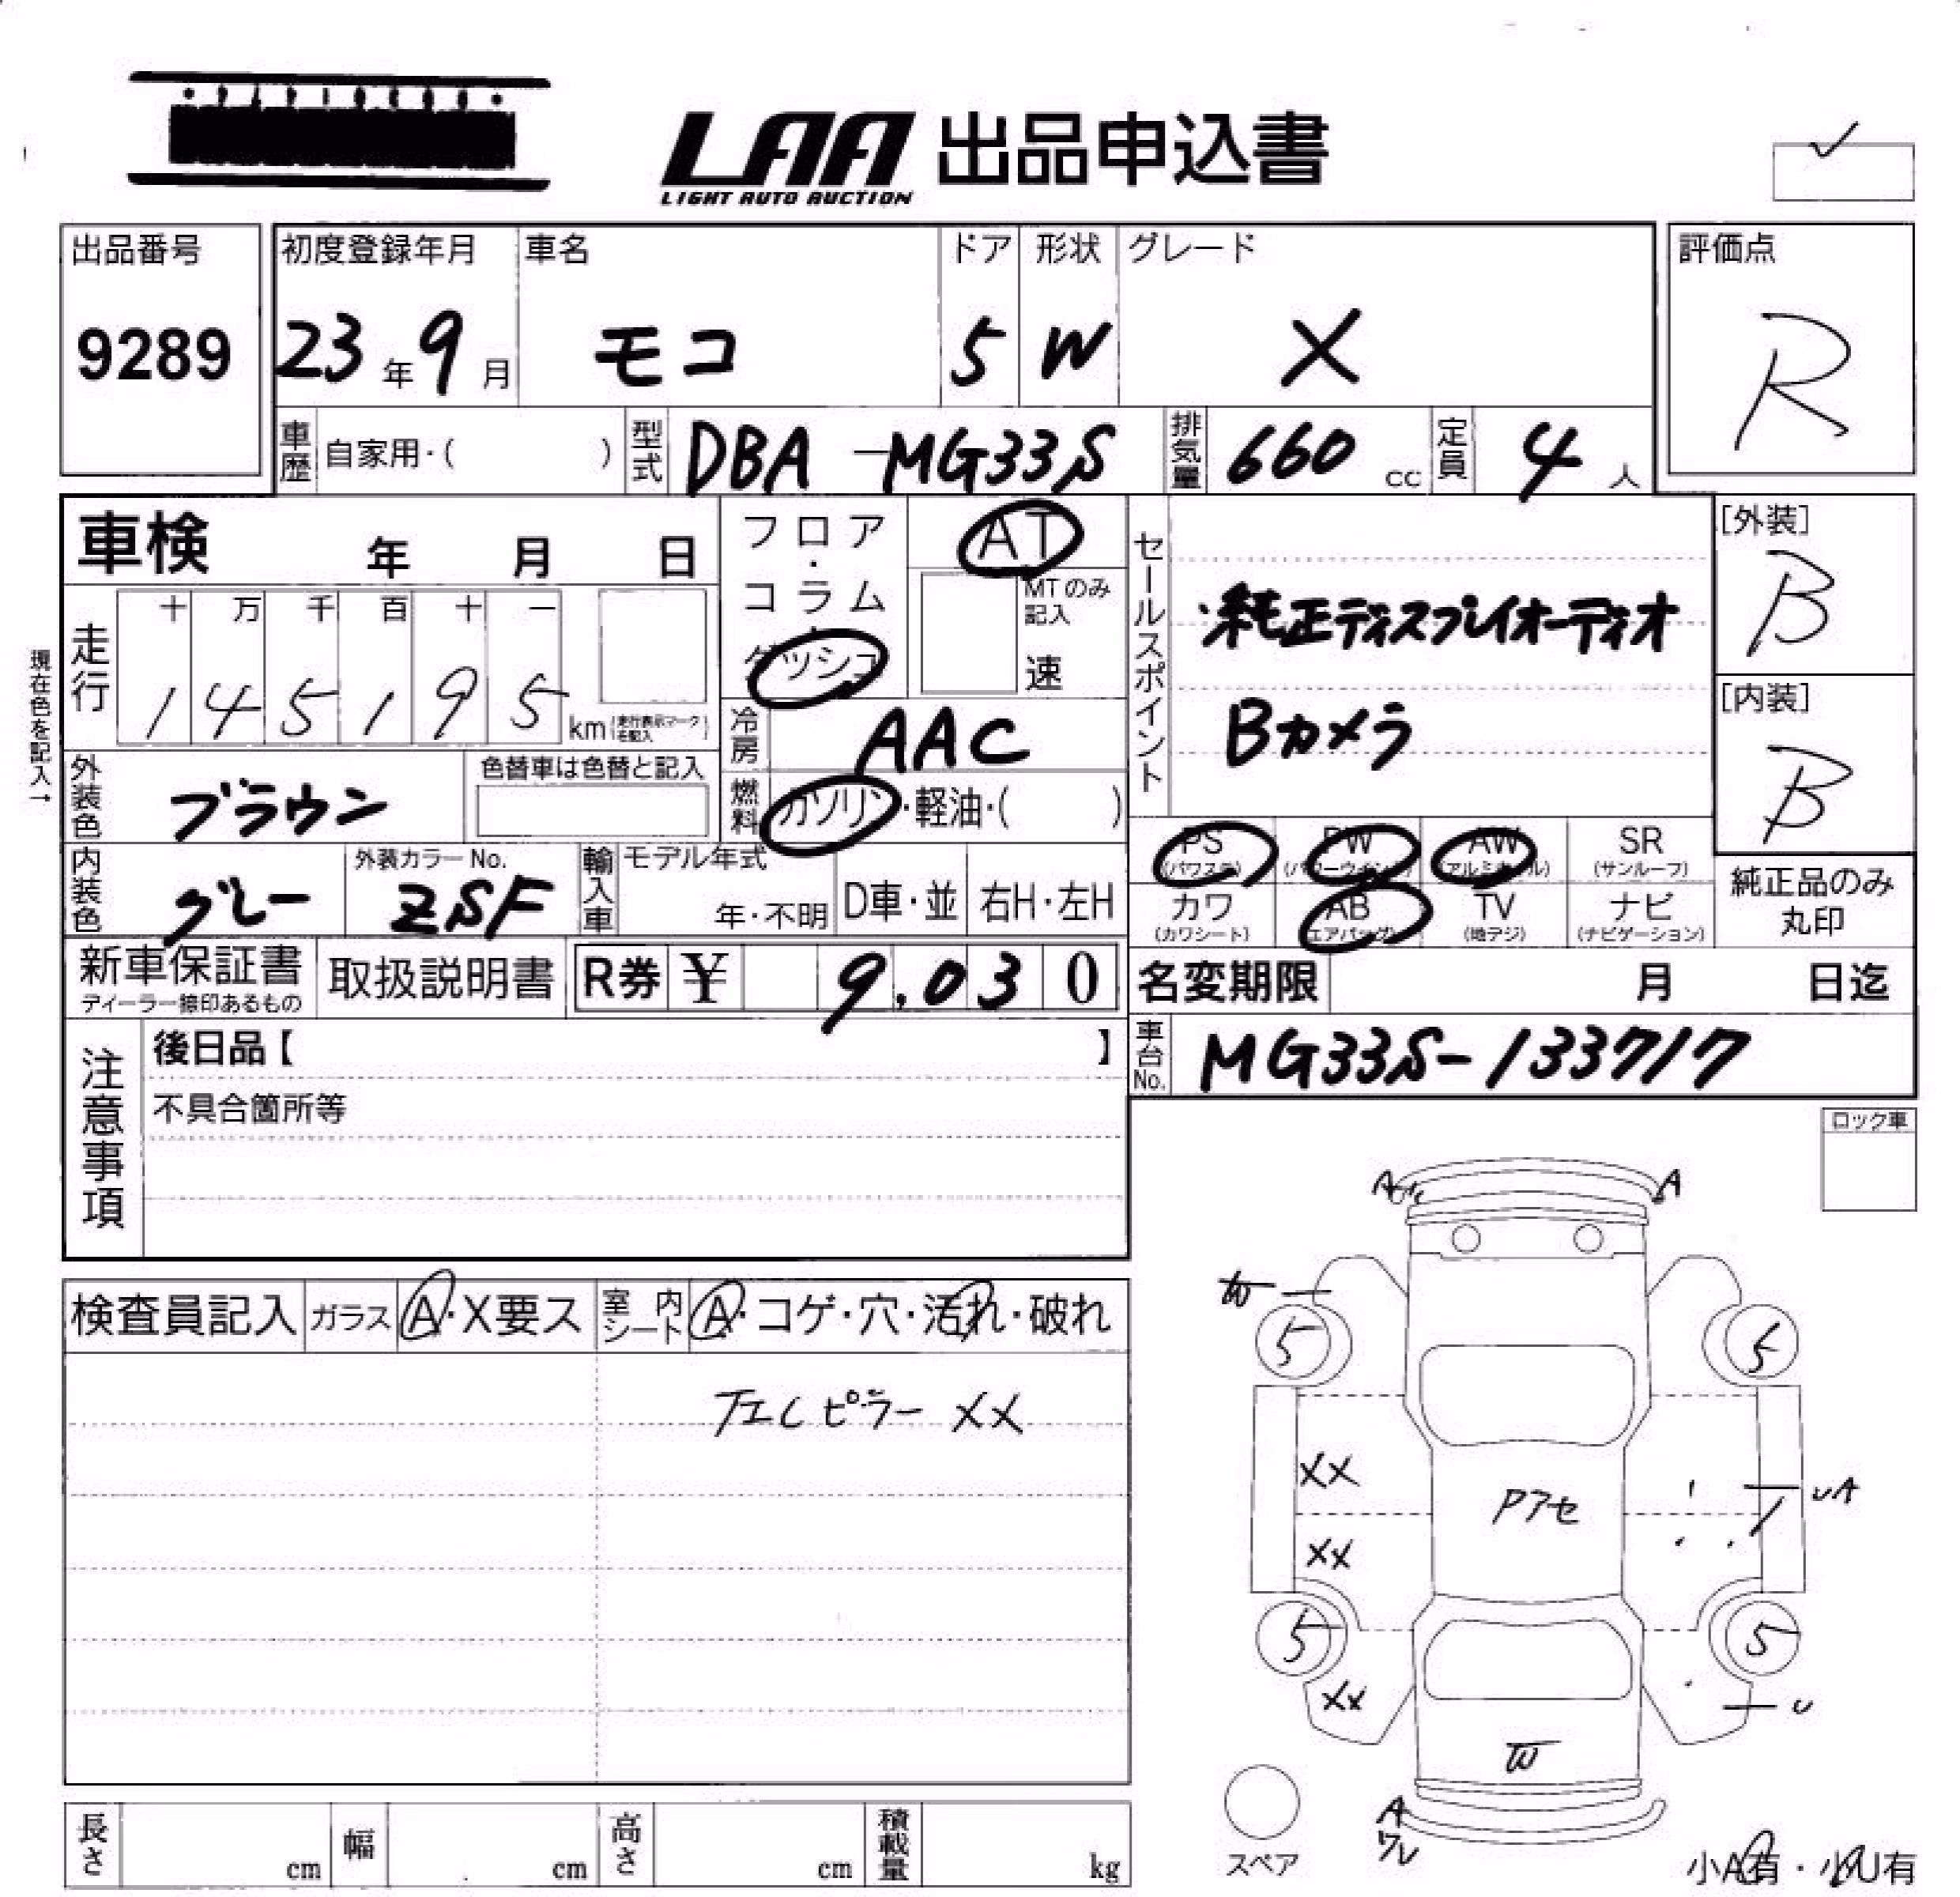 LAA 出品申込書
LIGHT AUTO AUCTION
出品番号
9289
初度登録年月
23年9月
車名
モコ
ドア
5
形状
W
グレード
X
評価点
R
車歴 自家用・( )
型式 DBA-MG33S
排気量 660cc
定員 4人
車検 年 月 日
フロア・コラム・ダッシュ
AT
MTのみ記入
速
セールスポイント
・純正ディスプレイオーディオ
Bカメラ
[外装]
B
[内装]
B
現在色を記入→
走行
十 万 千 百 十 一
1 4 5 1 9 5 km (走行表示マークを記入)
冷房 AAC
外装色 ブラウン
色替車は色替と記入
燃料 ガソリン・軽油・( )
内装色 グレー
外装カラーNo.
ZSF
輸入車 モデル年式
年・不明
D車・並
右H・左H
PS (パワステ)
PW (パワーウインドウ)
AW (アルミホイール)
SR (サンルーフ)
カワ (カワシート)
AB (エアバッグ)
TV (地デジ)
ナビ (ナビゲーション)
純正品のみ丸印
新車保証書
ディーラー捺印あるもの
取扱説明書
R券 ¥ 9,030
名変期限 月 日迄
車台No. MG33S-133717
注意事項
後日品【 】
不具合箇所等
ロック車
検査員記入
ガラス A・X要ス
室内シート A・コゲ・穴・汚れ・破れ
左Cピラー XX
A
A
5
5
XX
UA
Pアセ
XX
5
5
XX
U
W
A
ワレ
スペア
小A有・小U有
長さ cm
幅 cm
高さ cm
積載量 kg